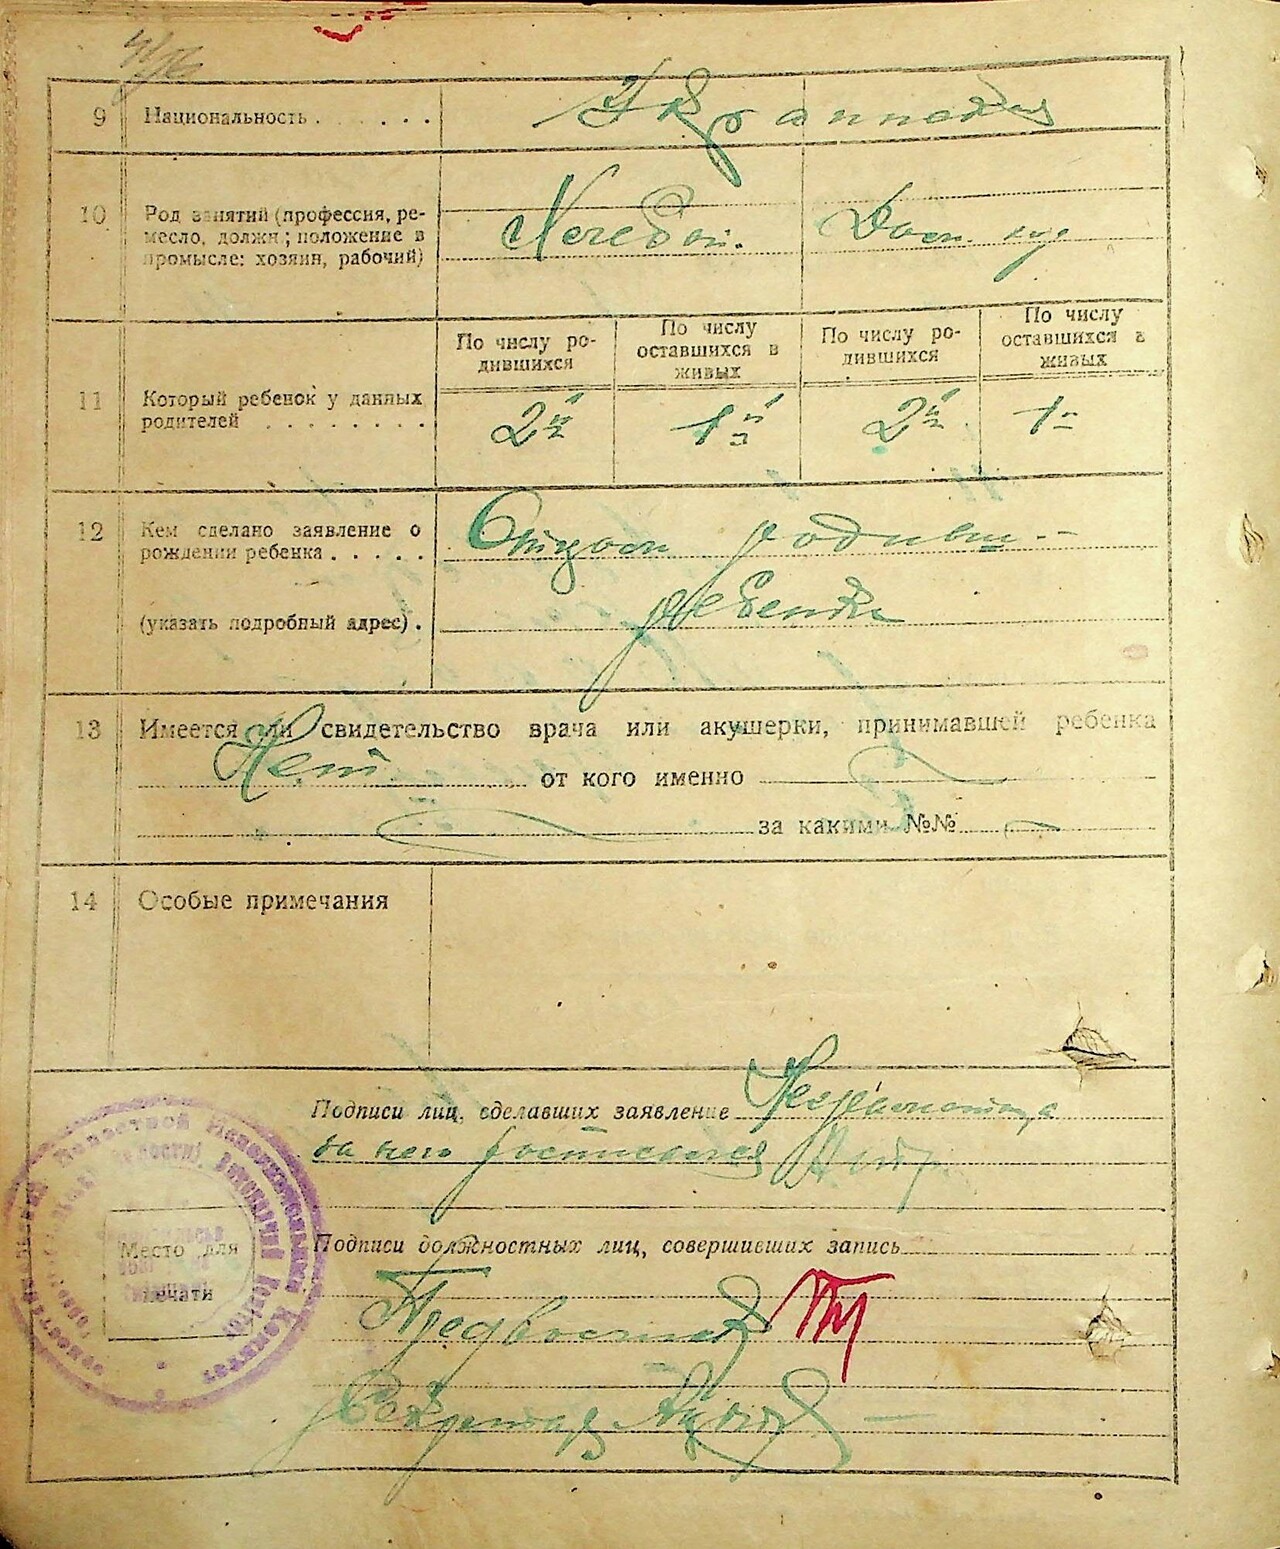 9 Национальность . . . . . . Украинская
10 Род занятий (профессия, ре-
месло, должн; положение в
промысле: хозяин, рабочий)
Хлебоп. Дом.
По числу ро-
дившихся
По числу
оставшихся в
живых
По числу ро-
дившихся
По числу
оставшихся в
живых
11 Который ребенок у данных
родителей . . . . . . . .
2й 1й 2й 1й
12 Кем сделано заявление о
рождении ребенка . . . . .
Отцом родивш. -
(указать подробный адрес) .
ребенка
13 Имеется ли свидетельство врача или акушерки, принимавшей ребенка
Нет от кого именно
за какими №№
14 Особые примечания
Подписи лиц, сделавших заявление Неграмотн
за него росписался
Место для
печати
Подписи должностных лиц, совершивших запись
Секретарь